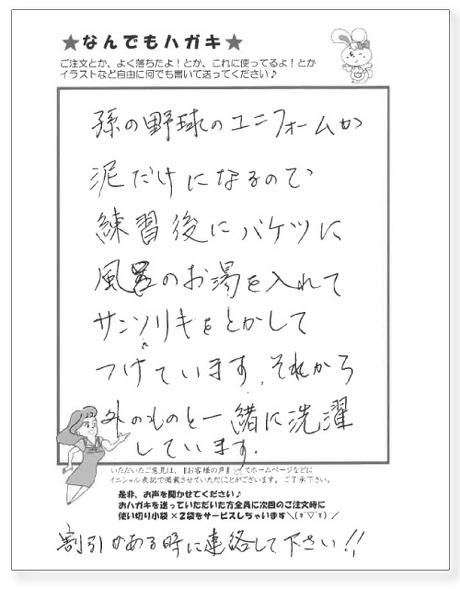 ★なんでもハガキ★
ご注文とか、よく落ちたよ！とか、これに使ってるよ！とか
イラストなど自由に何でも書いて送ってください♪
孫の野球のユニフォームが
泥だけになるので
練習後にバケツに
風呂のお湯を入れて
サンソリキをとかして
つけています。それから
外のものと一緒に洗濯
しています。
いただいたご意見は、【お客様の声】としてホームページなどに
イニシャル表記で掲載させていただくことがございます。ご了承下さい。
是非、お声を聞かせてください♪
おハガキを送っていただいた方全員に次回のご注文時に
使い切り小袋×2袋をサービスしちゃいます＼(*´▽`*)／
割引がある時に連絡して下さい!!